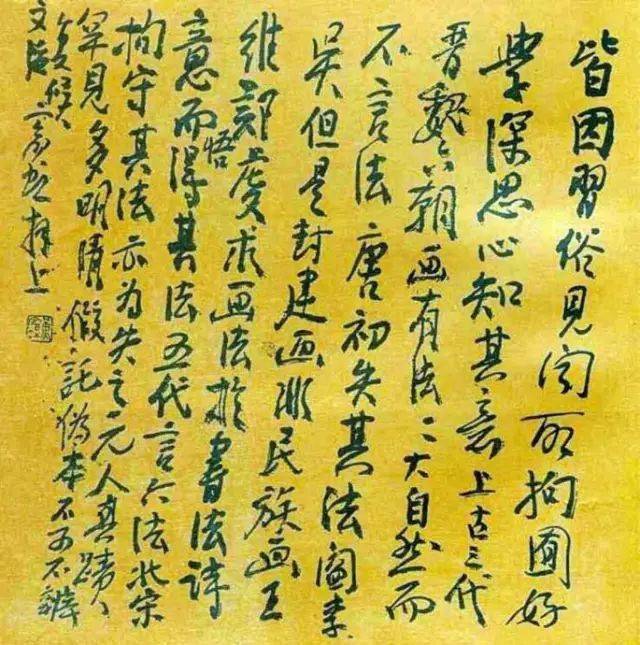 皆因習俗見聞所拘囿好
學深思心知其意上古三代
晋魏六朝画有法〻大自然而
不言法唐初失其法閻李
吳但是封建画非民族画王
維鄭虔求画法於書法詩
意而悟得其法五代言六法北宋
拘守其法亦為失之元人真蹟
罕見多明清假託偽本不可不辨
賓虹拜上